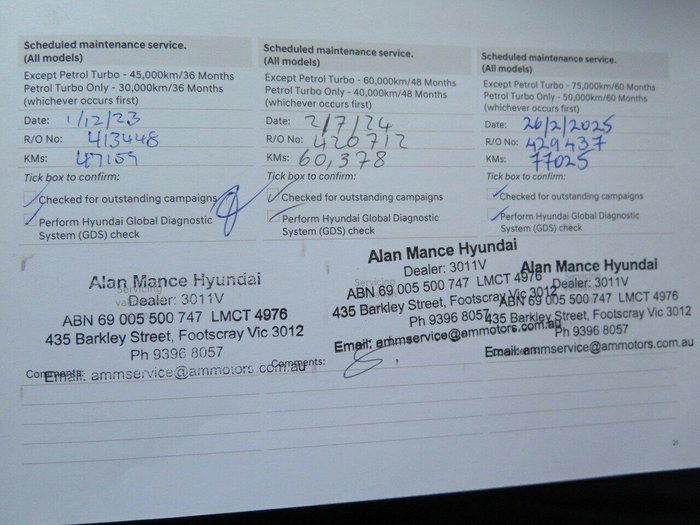 Scheduled maintenance service.
(All models)
Except Petrol Turbo - 45,000km/36 Months
Petrol Turbo Only - 30,000km/36 Months
(whichever occurs first)
Date: 1/12/23
R/O No: 413448
KMs: 47159
Tick box to confirm:
Checked for outstanding campaigns
Perform Hyundai Global Diagnostic
System (GDS) check
Alan Mance Hyundai
Servicing
Dealer: 3011V
ABN 69 005 500 747 LMCT 4976
435 Barkley Street, Footscray Vic 3012
Ph 9396 8057
Email: ammservice@ammotors.com.au
Comments:
Scheduled maintenance service.
(All models)
Except Petrol Turbo - 60,000km/48 Months
Petrol Turbo Only - 40,000km/48 Months
(whichever occurs first)
Date: 2/7/24
R/O No: 420712
KMs: 60,378
Tick box to confirm:
Checked for outstanding campaigns
Perform Hyundai Global Diagnostic
System (GDS) check
Alan Mance Hyundai
Servicing
Dealer: 3011V
ABN 69 005 500 747 LMCT 4976
435 Barkley Street, Footscray Vic 3012
Ph 9396 8057
Email: ammservice@ammotors.com.au
Comments:
Scheduled maintenance service.
(All models)
Except Petrol Turbo - 75,000km/60 Months
Petrol Turbo Only - 50,000km/60 Months
(whichever occurs first)
Date: 26/2/2025
R/O No: 429437
KMs: 77025
Tick box to confirm:
Checked for outstanding campaigns
Perform Hyundai Global Diagnostic
System (GDS) check
Alan Mance Hyundai
Dealer: 3011V
ABN 69 005 500 747 LMCT 4976
435 Barkley Street, Footscray Vic 3012
Ph 9396 8057
Email: ammservice@ammotors.com.au
21